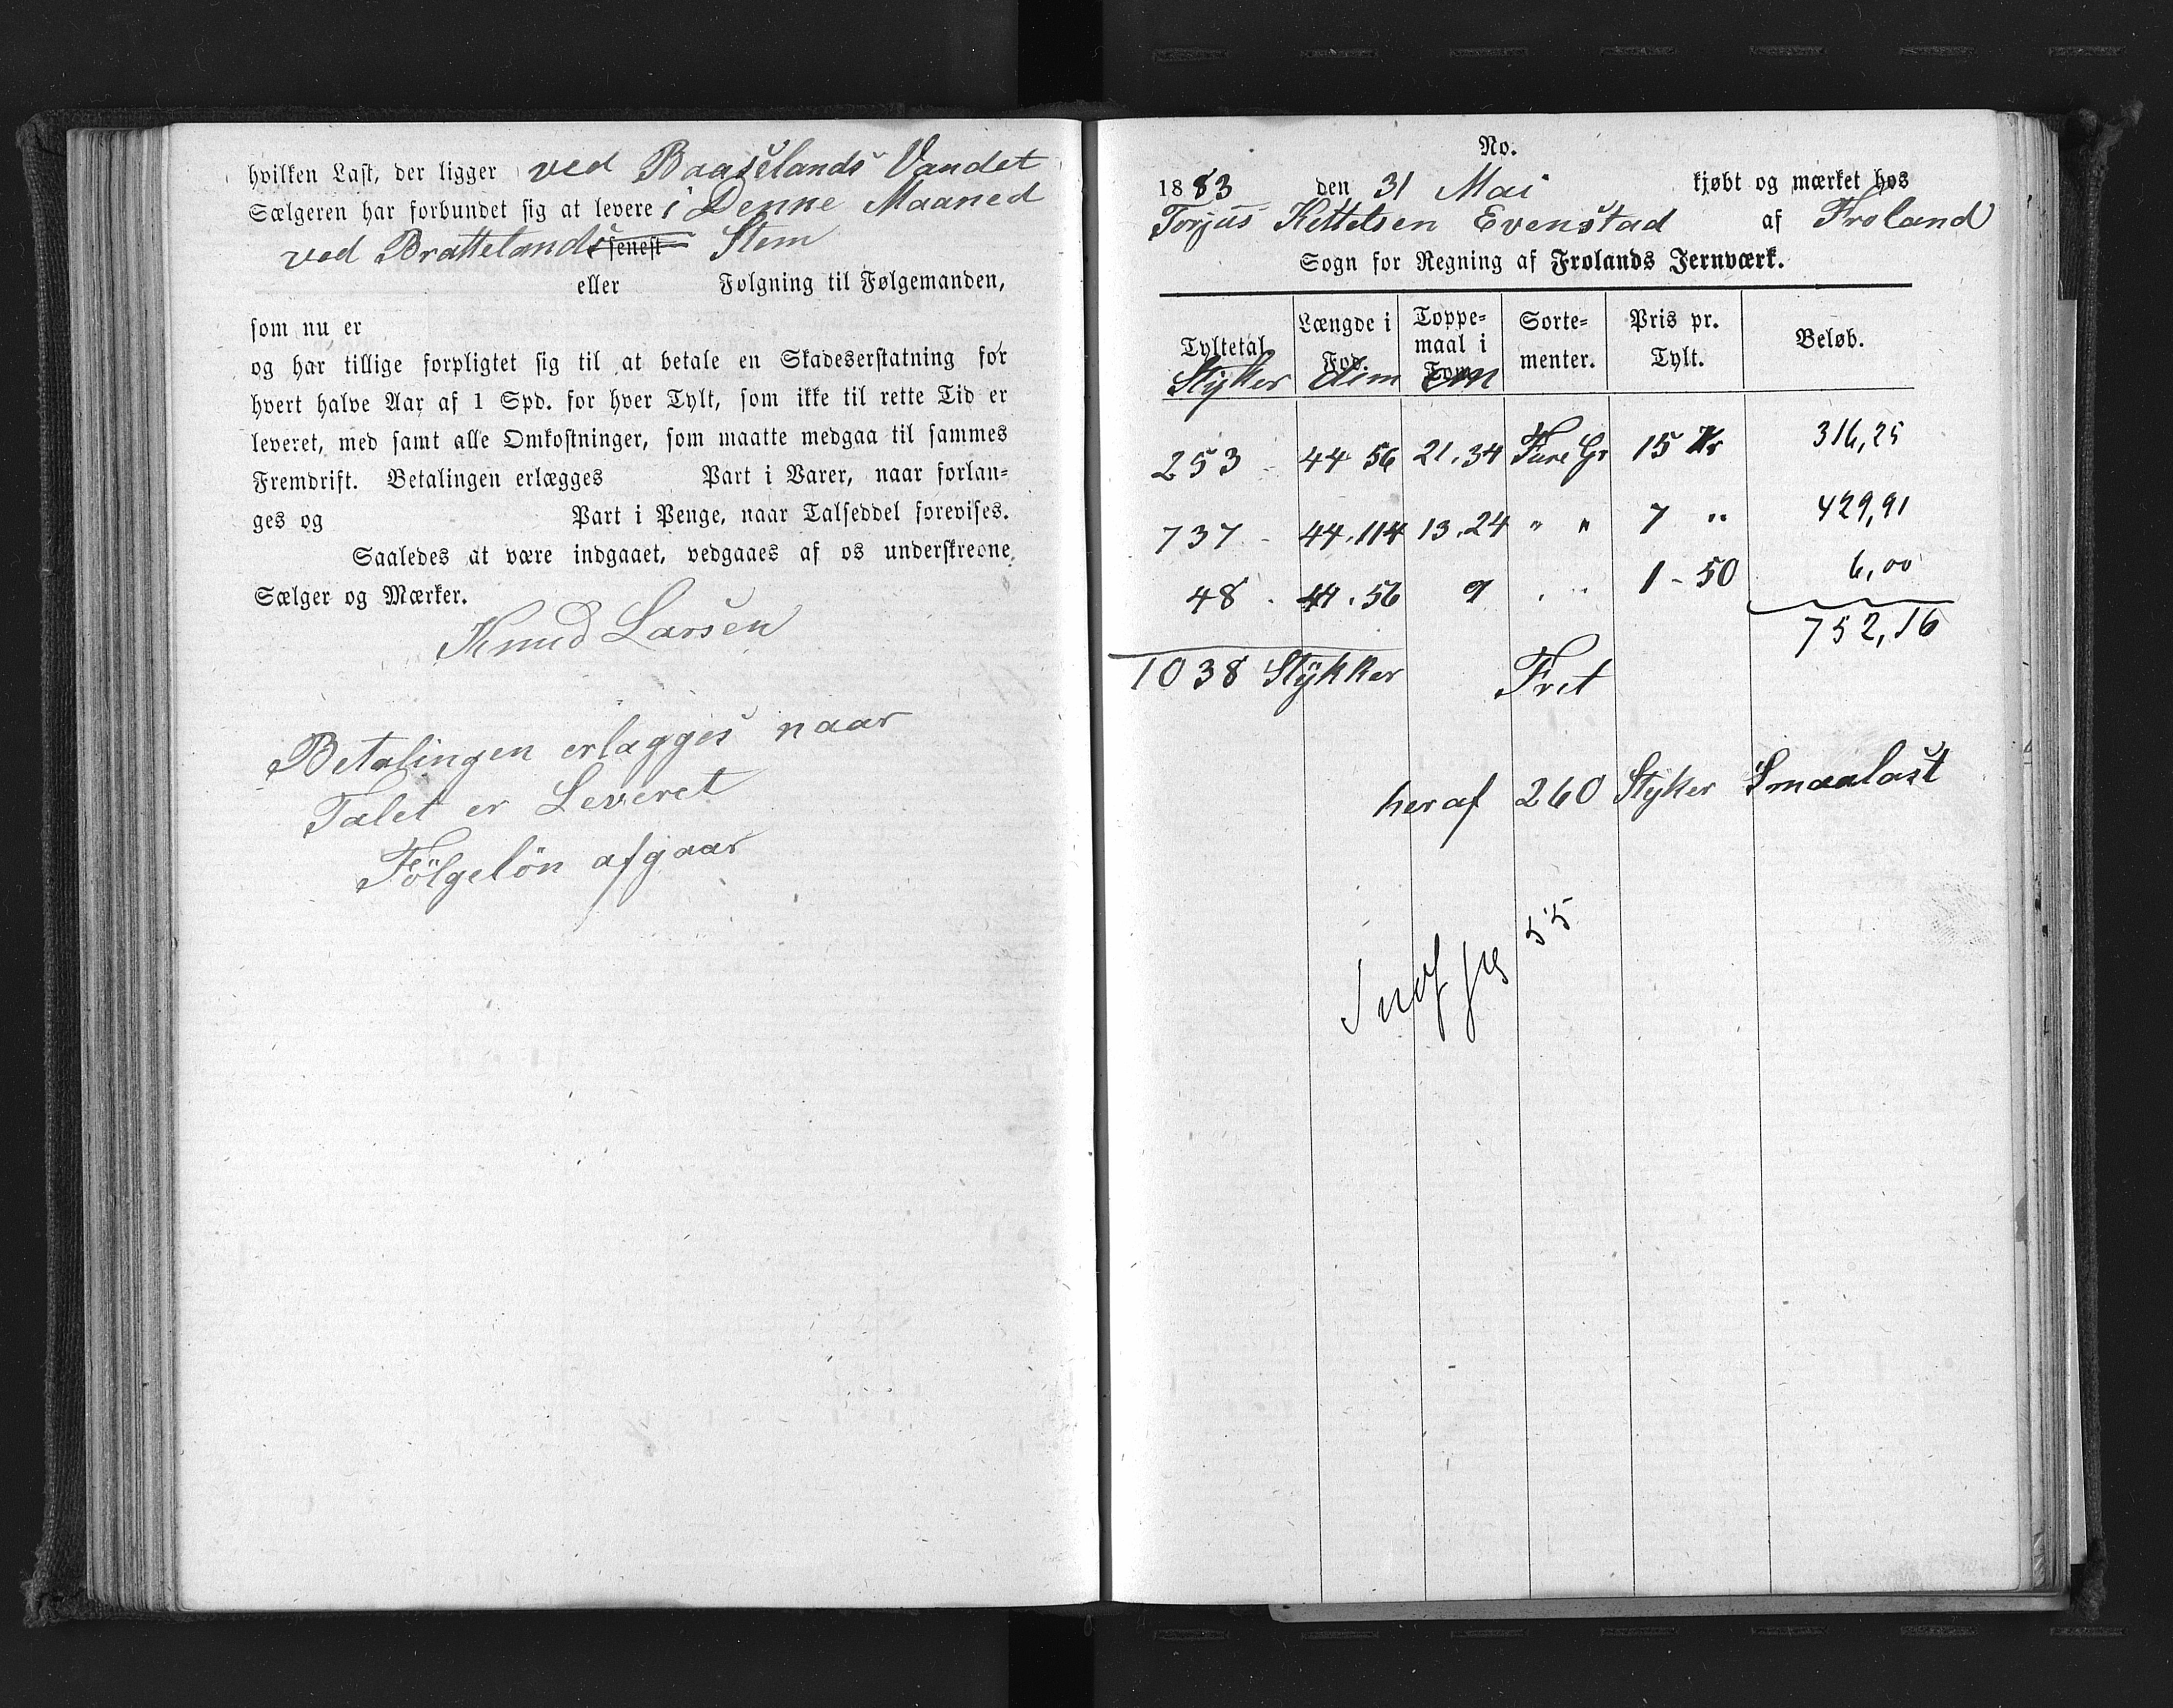 hvilken Last, der ligger ved Baaselands Vandet
Sælgeren har forbundet sig at levere i Denne Maaned
ved Brattelands senest Stem
eller Folgning til Følgemanden,
som nu er
og har tillige forpligtet sig til at betale en Skadeserstatning for
hvert halve Aar af 1 Spd. for hver Tylt, som ikke til rette Tid er
leveret, med samt alle Omkostninger, som maatte medgaa til sammes
Fremdrift. Betalingen erlægges Part i Varer, naar forlan-
ges og Part i Penge, naar Talseddel forevises.
Saaledes at være indgaaet, vedgaaes af os underskrevne
Sælger og Mærker.
Knud Larsen
Betalingen erlagges naar
Talet er Leveret
Fölgelön afgaar
No.
1883 den 31 Mai kjøbt og mærket hos
Torjus Kettelsen Evenstad af Froland
Sogn for Regning af Frolands Jernværk.
Tyltetal Længde i Fod. Toppe-maal i Tomm Sorte-menter. Pris pr. Tylt. Beløb.
Styker dim Cm
253 44 56 21.34 Fure Gr 15 Kr 316,25
737 44.114 13.24 " " 7 " 429,91
48 44.56 9 " " 1-50 6,00
752,16
1038 Stykker Fret
heraf 260 Styker Smaalast
55